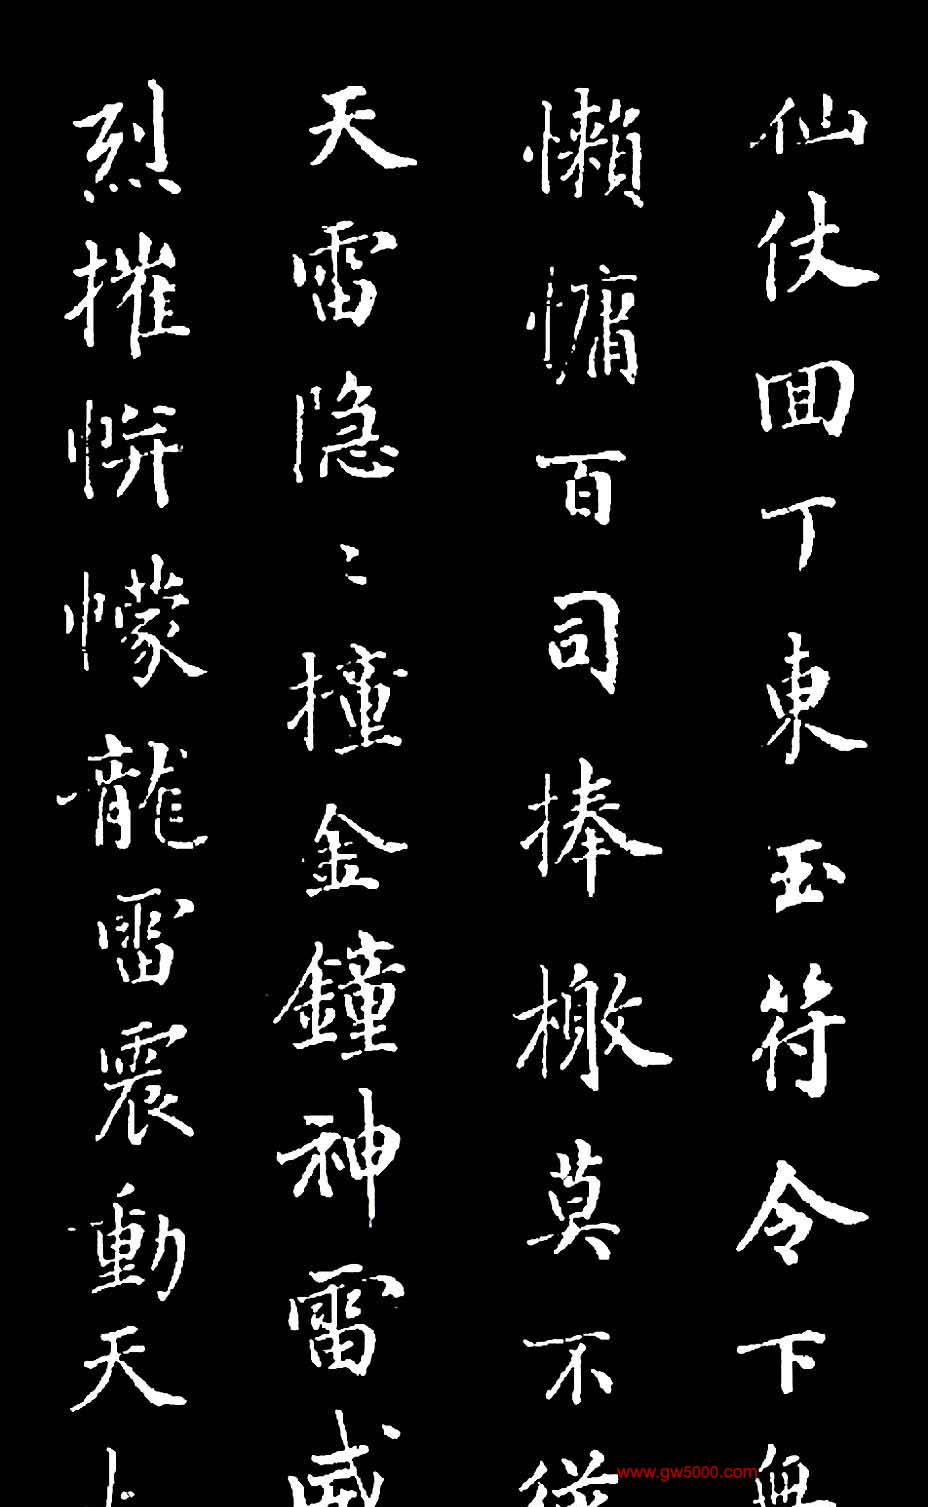 仙仗回丁東玉符令下無
懶慵百司捧檄莫不從
天雷隐〻撞金鐘神雷威
烈摧恲幪龍雷震動天上
www.gw5000.com